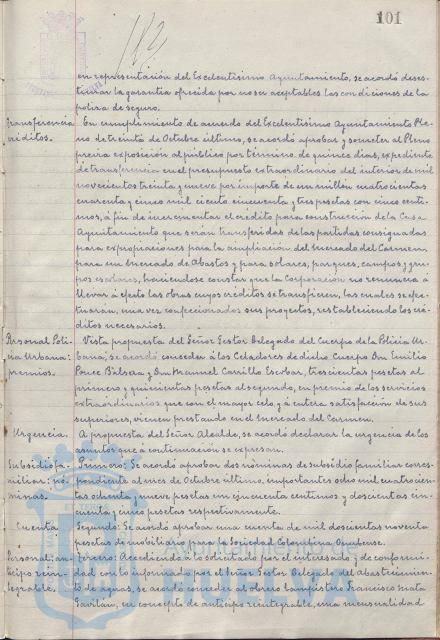 101
112
en representación del Excelentísimo Ayuntamiento, se acordó deses-
timar la garantía ofrecida por no ser aceptables las condiciones de la
póliza de seguro.
Transferencia
créditos.
En cumplimiento de acuerdo del Excelentísimo Ayuntamiento Ple-
no de treinta de Octubre último, se acordó aprobar y someter al Pleno
previa exposición al público por término de quince días, expediente
de transferencia en el presupuesto extraordinario del interior de mil
novecientos treinta y nueve por importe de un millón cuatrocientas
cuarenta y cinco mil ciento cincuenta y tres pesetas con cinco cénti-
mos, á fin de incrementar el crédito para construcción de la Casa
Ayuntamiento que serán transferidas de las partidas consignadas
para expropiaciones para la ampliación del Mercado del Carmen,
para un Mercado de Abastos y para solares, parques, campos y gru-
pos escolares, haciéndose constar que la Corporación no renuncia á
llevar á efecto las obras cuyos créditos se transfieren, las cuales se efec-
tuarán, una vez confeccionados sus proyectos, restableciendo los cré-
ditos necesarios.
Personal Poli-
cía Urbana:
premios.
Vista propuesta del Señor Gestor Delegado del Cuerpo de la Policía Ur-
bana; se acordó conceder á los Celadores de dicho Cuerpo Don Emilio
Ponce Bálsan y Don Manuel Carrillo Escobar, trescientas pesetas al
primero y quinientas pesetas al segundo, en premio de los servicios
extraordinarios que con el mayor celo y á entera satisfacción de sus
superiores, vienen prestando en el Mercado del Carmen.
Urgencia.
A propuesta del Señor Alcalde, se acordó declarar la urgencia de los
asuntos que a continuación se expresan.
Subsidio fa-
miliar: nó-
minas.
Primero: Se acordó aprobar dos nóminas de subsidio familiar corres-
pondiente al mes de Octubre último, importantes ocho mil cuatrocien-
tas ochenta y nueve pesetas con cincuenta céntimos y doscientas cin-
cuenta y cinco pesetas respectivamente.
Cuenta
Segundo: Se acordó aprobar una cuenta de mil doscientas noventa
pesetas de mobiliario para la Sociedad Colombina Onubense.
Personal: an-
ticipo rein-
tegrable.
Tercero: Accediendo a lo solicitado por el interesado y de conformi-
dad con lo informado por el Señor Gestor Delegado del Abastecimien-
to de aguas, se acordó conceder al obrero lampistero Francisco Mata
Gavilán, en concepto de anticipo reintegrable, una mensualidad